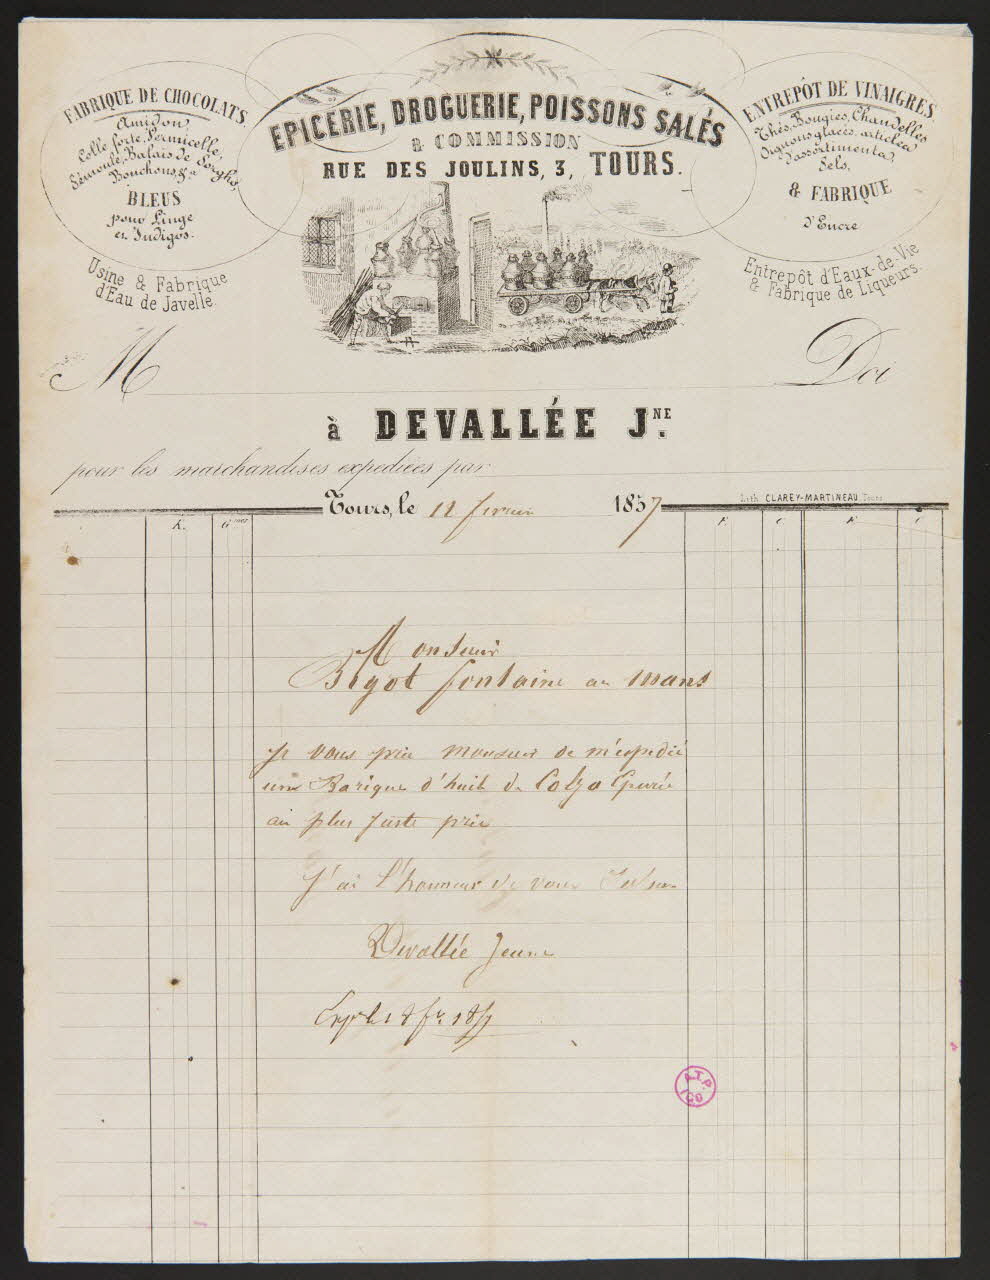 FABRIQUE DE CHOCOLATS.
Amidon,
Colle forte, Vermicelle,
Semoule, Balais de Sorgho,
Bouchons, &a
BLEUS
pour Linge
et Indigos.
Usine & Fabrique
d'Eau de Javelle.
EPICERIE, DROGUERIE, POISSONS SALÉS
& COMMISSION
RUE DES JOULINS, 3, TOURS.
ENTREPÔT DE VINAIGRES
Thés, Bougies, Chandelles
Oignons glacés, articles
d'assortiments,
Sels,
& FABRIQUE
d'Encre
Entrepôt d'Eaux-de-Vie
& Fabrique de Liqueurs.
M Doi
à DEVALLÉE JNE.
pour les marchandises expédiées par
Lith. CLAREY-MARTINEAU, Tours
Tours, le 12 fevrier 1857
K. F. C. F. C.
Monsieur
Bigot fontaine au mans
Je vous prie monsieur de m'expedié
une Barique d'huile de Colza Epurée
au plus juste prix
J'ai l'honneur de vous
Devallée Jeune
A.T.P.